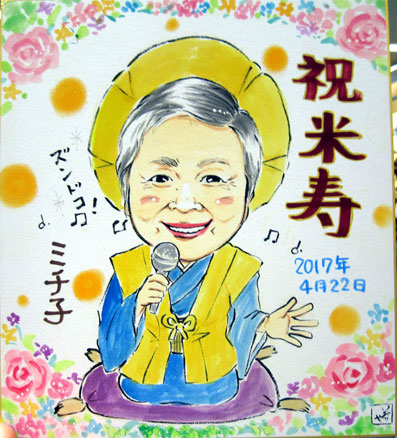 祝米寿
2017年
4月22日
ズンドコ♫!
ミチ子